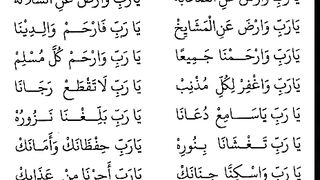 يَا رَبِّ وَارْضَ عَنِ السُّلَالَهْ
يَا رَبِّ وَارْضَ عَنِ الْمَشَايِخْ يَا رَبِّ فَارْحَمْ وَالِدِيْنَا
يَا رَبِّ وَارْحَمْنَا جَمِيعًا يَا رَبِّ وَارْحَمْ كُلَّ مُسْلِمْ
يَا رَبِّ وَاغْفِرْ لِكُلِّ مُذْنِبْ يَا رَبِّ لَاتَقْطَعْ رَجَانَا
يَا رَبِّ يَاسَامِعْ دُعَانَا يَارَبِّ بَلِّغْنَا نَزُورُهْ
يَا رَبِّ تَغْشَانَا بِنُورِهْ يَارَبِّ حِفْظَانَكْ وَأَمَانَكْ
يَا رَبِّ وَاسْكِنَّا جِنَانَكْ يَا رَبِّ أَجِرْنَا مِنْ عَذَابِكْ